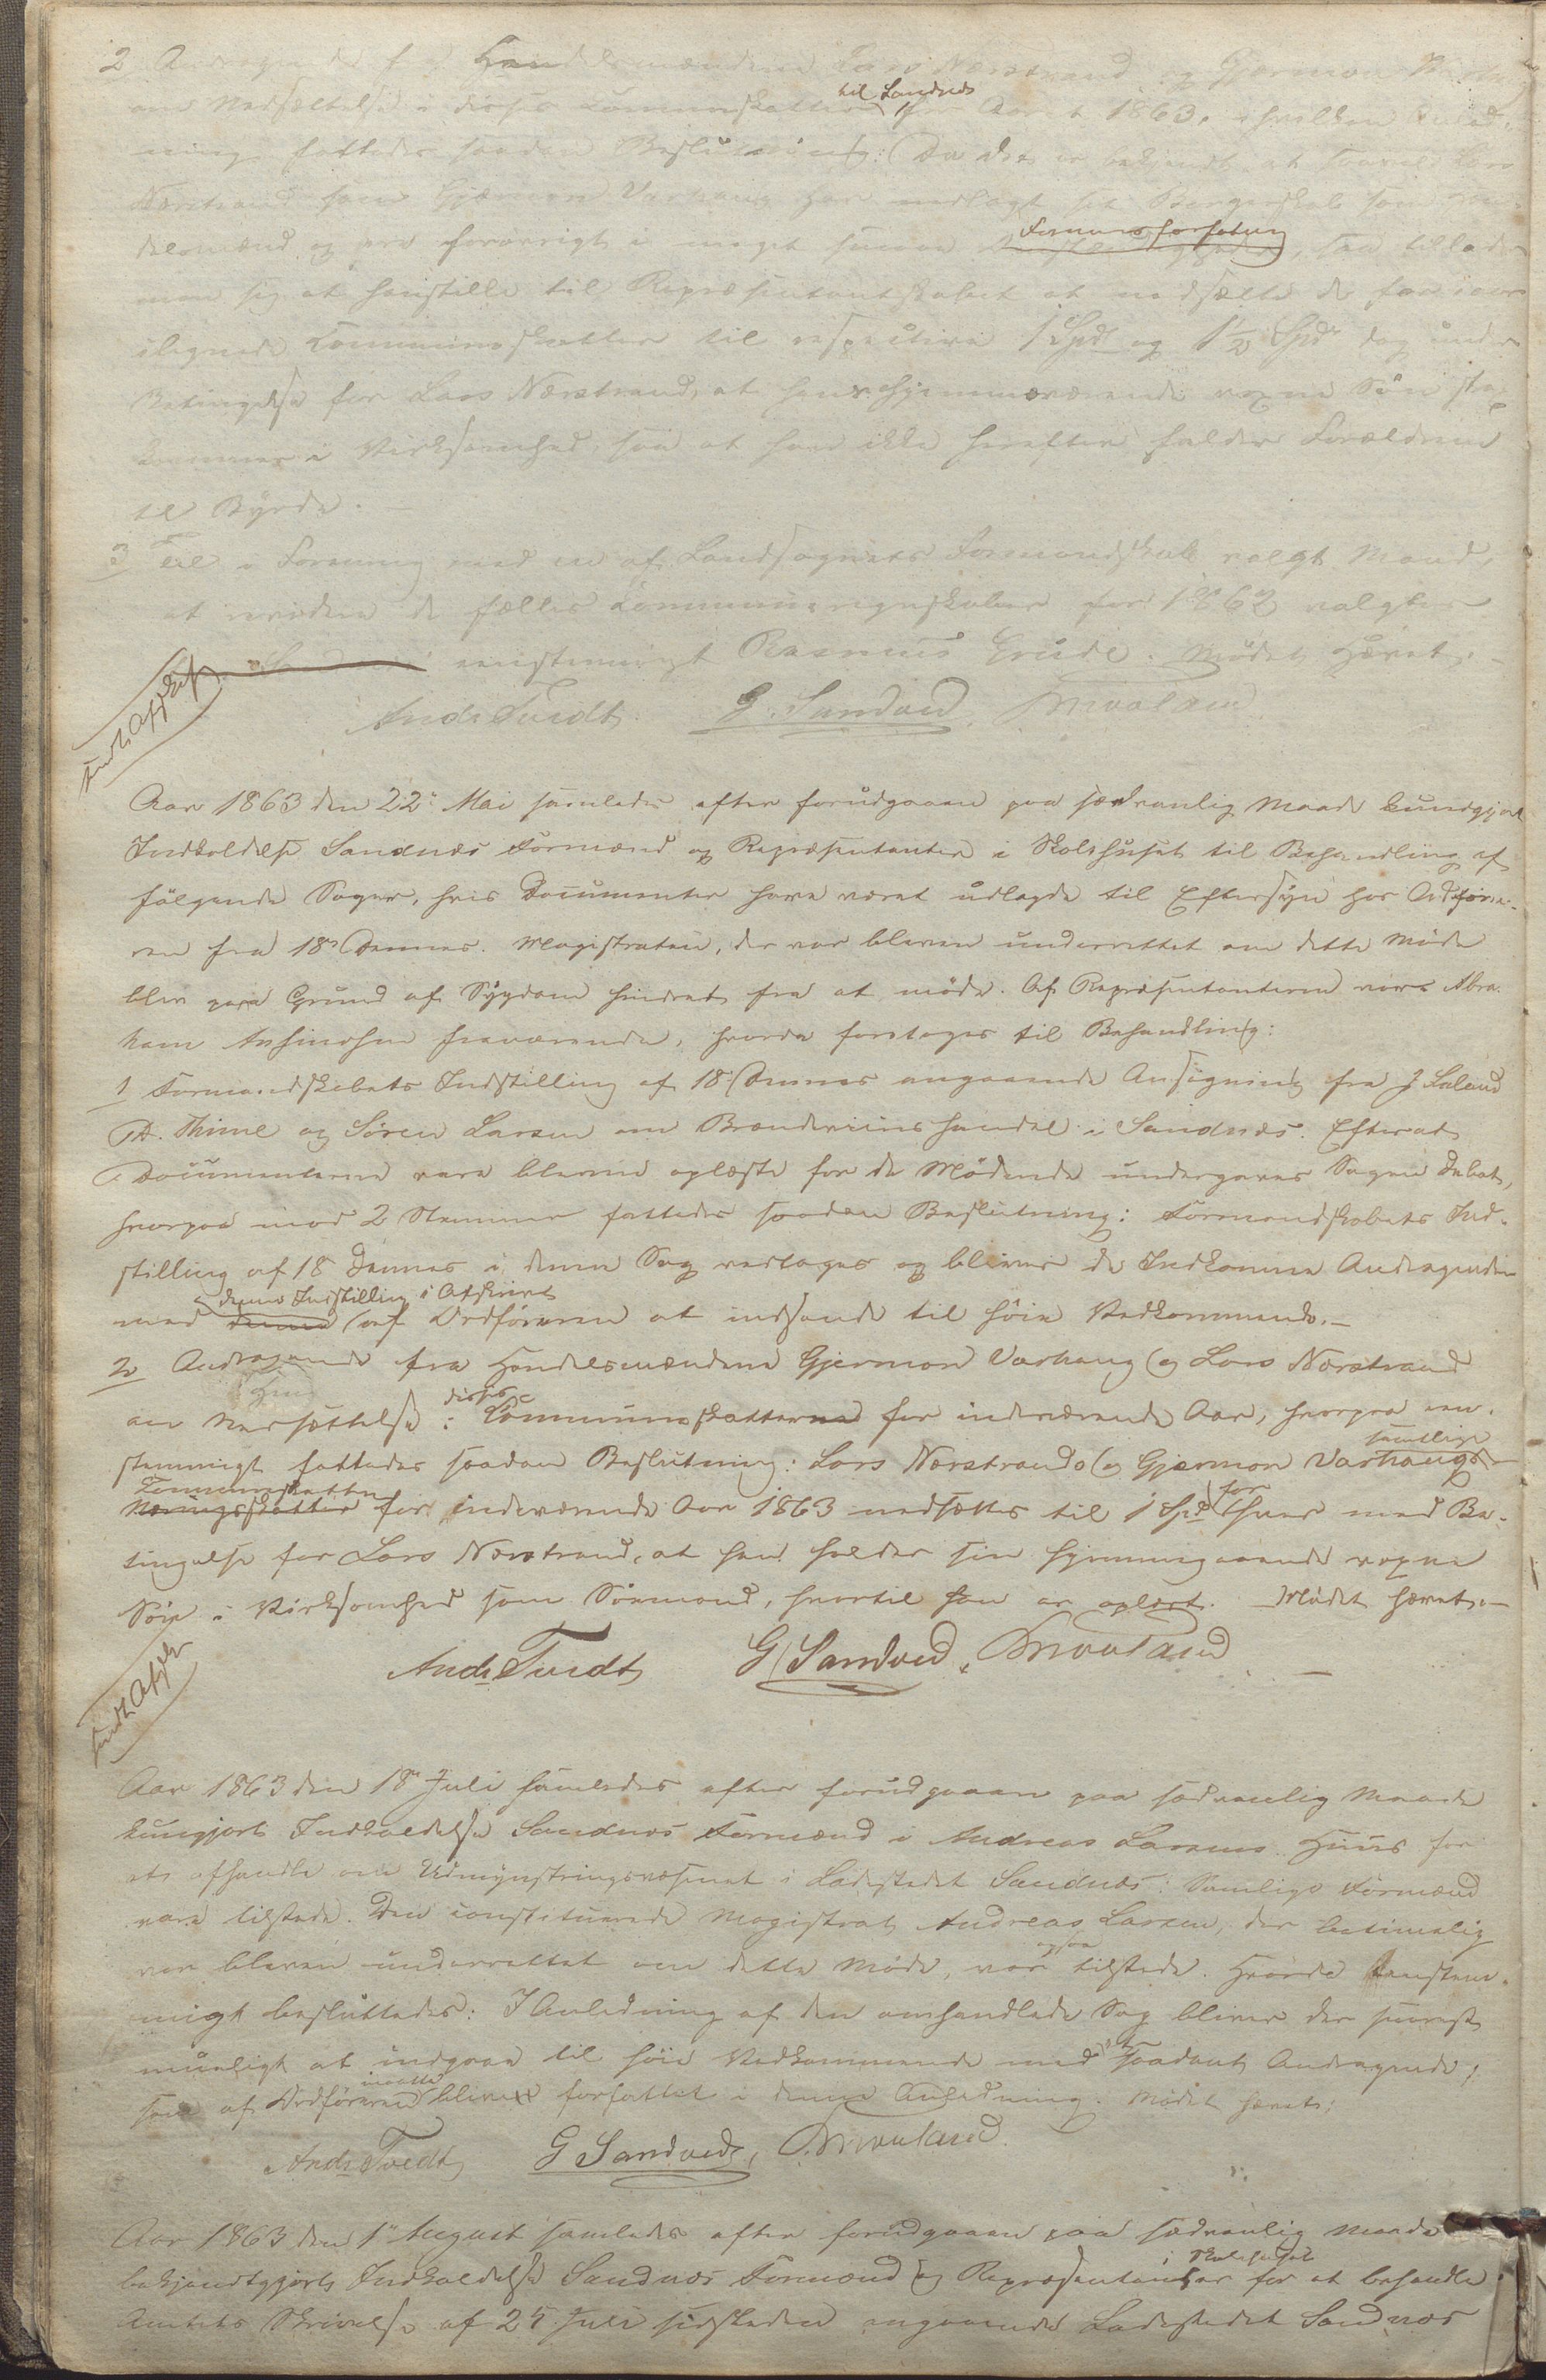 2 Andragende fra Handelsmændene Lars Nærstrand og Gjermon Varhaug
om Nedsættelse i disses Kommuneskatter til Sandnæs for Aaret 1863, i hvilken Anled-
ning fattedes saadan Beslutning: Da det er bekjendt at saavel Lars
Nærstrand som Gjermon Varhaug har nedlagt sit Borgerskab som Han-
delsmænd og ere forøvrigt i meget smaa Formuesforfatning, saa tillader
man sig at henstille til Repræsentantskabet at nedsætte de for iaar
ilignede Kommuneskatter til respective 1 Spd og 1½ Spd dog under
Betingelse for Lars Nærstrand, at hans hjemmeværende voxne Søn strax
kommer i Virksomhed, saa at han ikke herefter falder Forældrene
til Byrde. –
3 Til i Forening med en af Landsognets Formandskab valgt Mand,
at revidere de fælles Kommuneregnskaber for 1862 valgtes
eenstemmigt Rasmus Grude. Mødet hævet. –
Andr Tvedt. G. Sandved,
Udt Afskr
Aar 1863 den 22de Mai samledes efter forudgaaen paa sædvanlig Maade kundgjort
Indkaldelse Sandnæs Formænd og Repræsentanter i Skolehuset til Behandling af
følgende Sager, hvis Documenter have været udlagde til Eftersyn hos Ordføre-
ren fra 18de Dennes. Magistraten, der var bleven underrettet om dette Møde
blev paa Grund af Sygdom hindret fra at møde. Af Repræsentanterne vare Abra-
ham fraværende, hvorda foretages til Behandling:
1 Formandskabets Indstilling af 18 Dennes angaaende Ansøgning fra J Laland
A. Thime og Søren Larsen om Brændeviinshandel i Sandnæs. Efterat
Documenterne vare blevne oplæste for de Mødende undergaves Sagen Debat,
hvorpaa mod 2 Stemmer fattedes saadan Beslutning: Formandskabets Ind-
stilling af 18 Dennes i denne Sag vedtages og bliver de Indkomne Andragender
med denne Indstilling i Afskrivt af Ordføreren at indsende til høie Vedkommende. –
2 Andragende fra Handelsmændene Gjermon Varhaug og Lars Nærstrand
om Nedsættelse i disses Kommuneskatter for indeværende Aar, hvorpaa een-
stemmigt fattedes saadan Beslutning: Lars Nærstrands og Gjermon Varhaugs samtlige
Kommuneskatter for indeværende Aar 1863 nedsættes til 1 Spd for hver med Be-
tingelse for Lars Nærstrand, at han holder sin hjemmegaaende voxne
Søn i Virksomhed som Sømand, hvortil han er oplært. Mødet hævet. –
Andr Tvedt G Sandved,
Udt Afskr
Aar 1863 den 18de Juli samledes efter forudgaaen paa sædvanlig Maade
kungjort Indkaldelse Sandnæs Formænd i Andreas Larsens Huus for
at afhandle om Udmynstringsvæsenet i Ladestedet Sandnæs: Samtlige Formænd
vare tilstede. Den constituerede Magistrat Andreas Larsen, der betimelig
var bleven underrettet om dette Møde, var ogsaa tilstede. Hvorda Eenstem-
migt besluttedes: I Anledning af den omhandlede Sag bliver der snarest
muligt at indgaae til høie Vedkommende med et saadant Andragende,
som af Ordføreren maatte blive forfattet i denne Anledning. Mødet hævet;
Andr Tvedt G Sandved,
Aar 1863 den 1ste August samledes efter forudgaaen paa sædvanlig Maade
bekjendtgjort Indkaldelse Sandnæs Formænd og Repræsentanter i Skolehuset for at behandle
Amtets Skrivelse af 25 Juli sidstleden angaaende Ladestedet Sandnæs